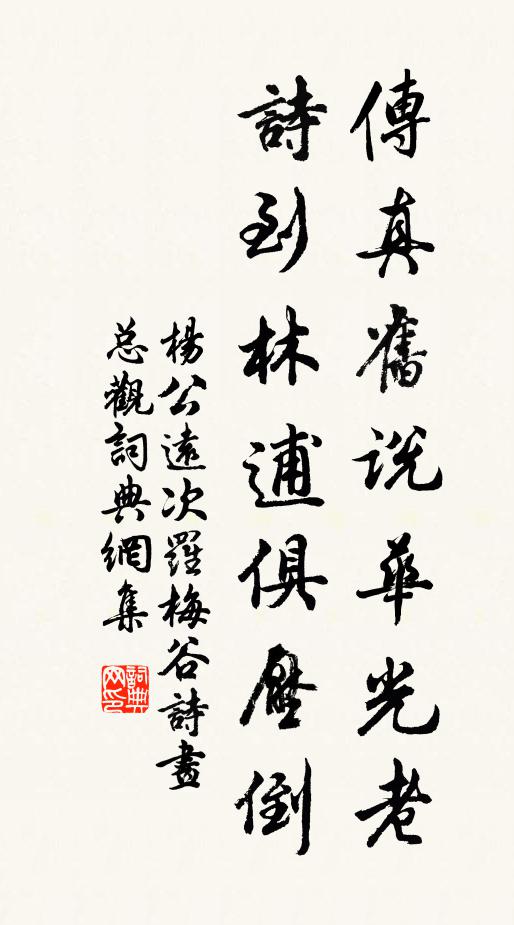 傳真舊說華光老
詩到林逋俱壓倒
楊公遠次羅梅谷詩畫
总觀詞典網集
詞典网印